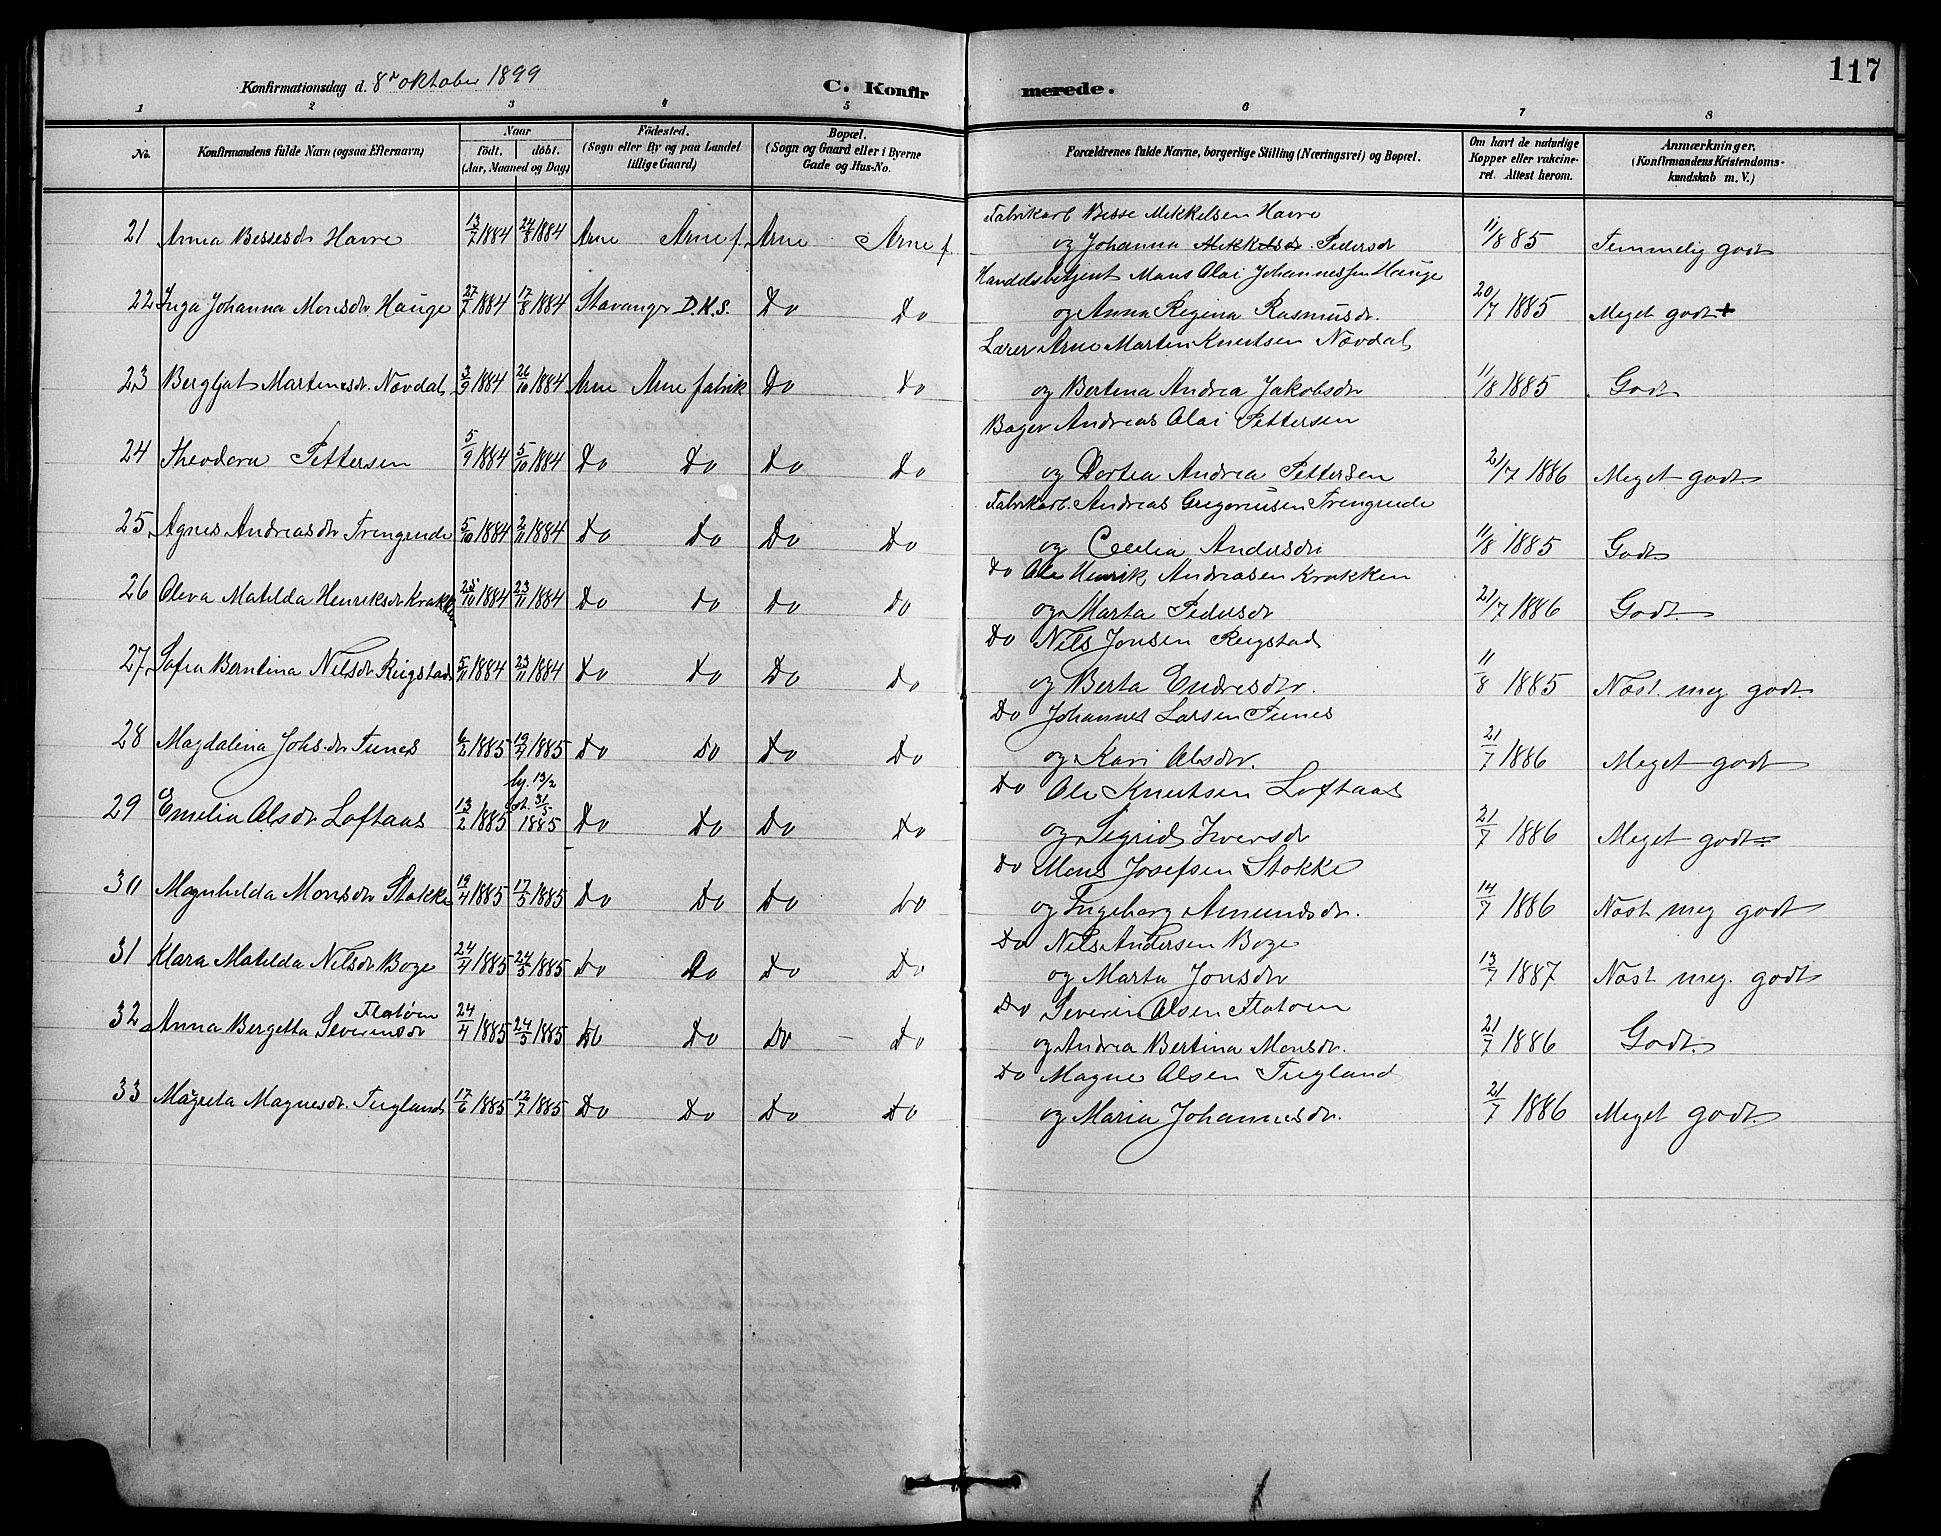 117
Konfirmationsdag d. 8de oktober 1899
C. Konfirmerede.
1 2 3 4 5 6 7 8
No. Konfirmandens fulde Navn (ogsaa Efternavn) Naar født. døbt. (Aar, Maaned og Dag) Fødested. (Sogn eller By og paa Landet tillige Gaard) Bopæl. (Sogn og Gaard eller i Byerne Gade og Hus-No. Forældrenes fulde Navne, borgerlige Stilling (Næringsvei) og Bopæl. Om havt de naturlige Kopper eller vakcineret. Attest herom. Anmærkninger. (Konfirmandens Kristendomskundskab m. V.)
Fabrikarb Besse Mikkelsen Havre
21 Anna Bessesdr Havre 13/7 1884 24/8 1884 Arne Arne f. Arne Arne f. og Johanna Mikkelsdr. Pedersdr 11/8 85 Temmelig godt
Handelsbetjent Mons Olai Johannessen Hauge
22 Inga Johanna Monsdr. Hauge 27/7 1884 17/8 1884 Stavanger D.K.S. Do Do og Anna Regina Rasmusdr. 20/7 1885 Meget godt +
Lærer Arne Martin Knutsen Növdal
23 Bergljot Martinesdr. Növdal 3/9 1884 26/10 1884 Arne Arne fabrik Do Do og Bertina Andrea Jakobsdr 11/8 1885 Godt
Bager Andreas Olai Pettersen
24 Theodora Pettersen 5/9 1884 5/10 1884 Do Do Do Do og Dortea Andrea Pettersen 21/7 1886 Meget godt
Fabrikarb. Andreas Gregoriusen Trengerede
25. Agnes Andreasdr Trengerede 5/10 1884 2/11 1884 Do Do Do Do og Cecilia Andersdr 11/8 1885 Godt
Do Ole Henrik Andreasen Krakken
26 Oleva Matilda Henriksdr Krakken 25/10 1884 23/11 1884 Do Do Do Do og Marta Pedersdr 21/7 1886 Godt.
Do Nils Jonsen Ringstad
27. Sofia Berntina Nilsdr Ringstad 5/11 1884 23/11 1884 Do Do Do Do og Berta Endresdtr. 11/8 1885 Næst meg godt.
Do Johannes Larsen Tunes
28 Magdalina Johsdr Tunes 6/2 1885 19/4 1885 Do Do Do Do og Kari Olsdtr. 21/7 1886 Meget godt
Do Ole Knutsen Loftaas
29 Emilia Olsdr Loftaas 13/2 1885 hj. 13/2 st. 31/5 1885 Do Do Do Do og Sigrid Iversdr 21/7 1886 Meget godt
Do Mons Josefsen Stokke
30 Magnhilda Monsdr Stokke 19/4 1885 17/5 1885 Do Do Do Do og Ingeborg Amundsdr. 14/7 1886 Næst meg godt
Do Nils Andersen Boge
31 Klara Matilda Nilsdr Boge 24/4 1885 24/5 1885 Do Do Do Do og Marta Jonsdr 13/7 1887 Næst meg. godt
Do Severin Olsen Flatöen
32 Anna Bergetta Severinsdr Flatöen 24/4 1885 24/5 1885 Do Do Do Do og Andrea Bertina Monsdr. 21/7 1886 Godt.
Do Magne Olsen Tugland
33 Magreta Magnesdr. Tugland 17/6 1885 12/7 1885 Do Do Do Do og Maria Johannesdr. 21/7 1886 Meget godt.